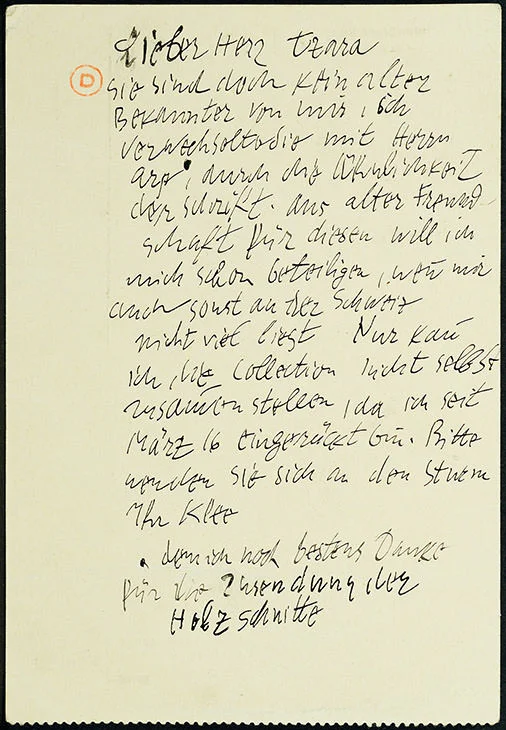 Lieber Herr Tzara
D
Sie sind doch kein alter
Bekannter von mir, ich
verwechselte Sie mit Herrn
Arp, durch die Ähnlichkeit
der Schrift. Aus alter Freund-
schaft für diesen will ich
mich schon beteiligen, wen mir
auch sonst an der Schweiz
nicht viel liegt Nur kan
ich die Collection nicht selbst
zusamenstellen, da ich seit
März 16 eingerückt bin. Bitte
wenden Sie sich an den Sturm
Ihr Klee
noch bestens Danke
für die Zusendung der
Holzschnitte